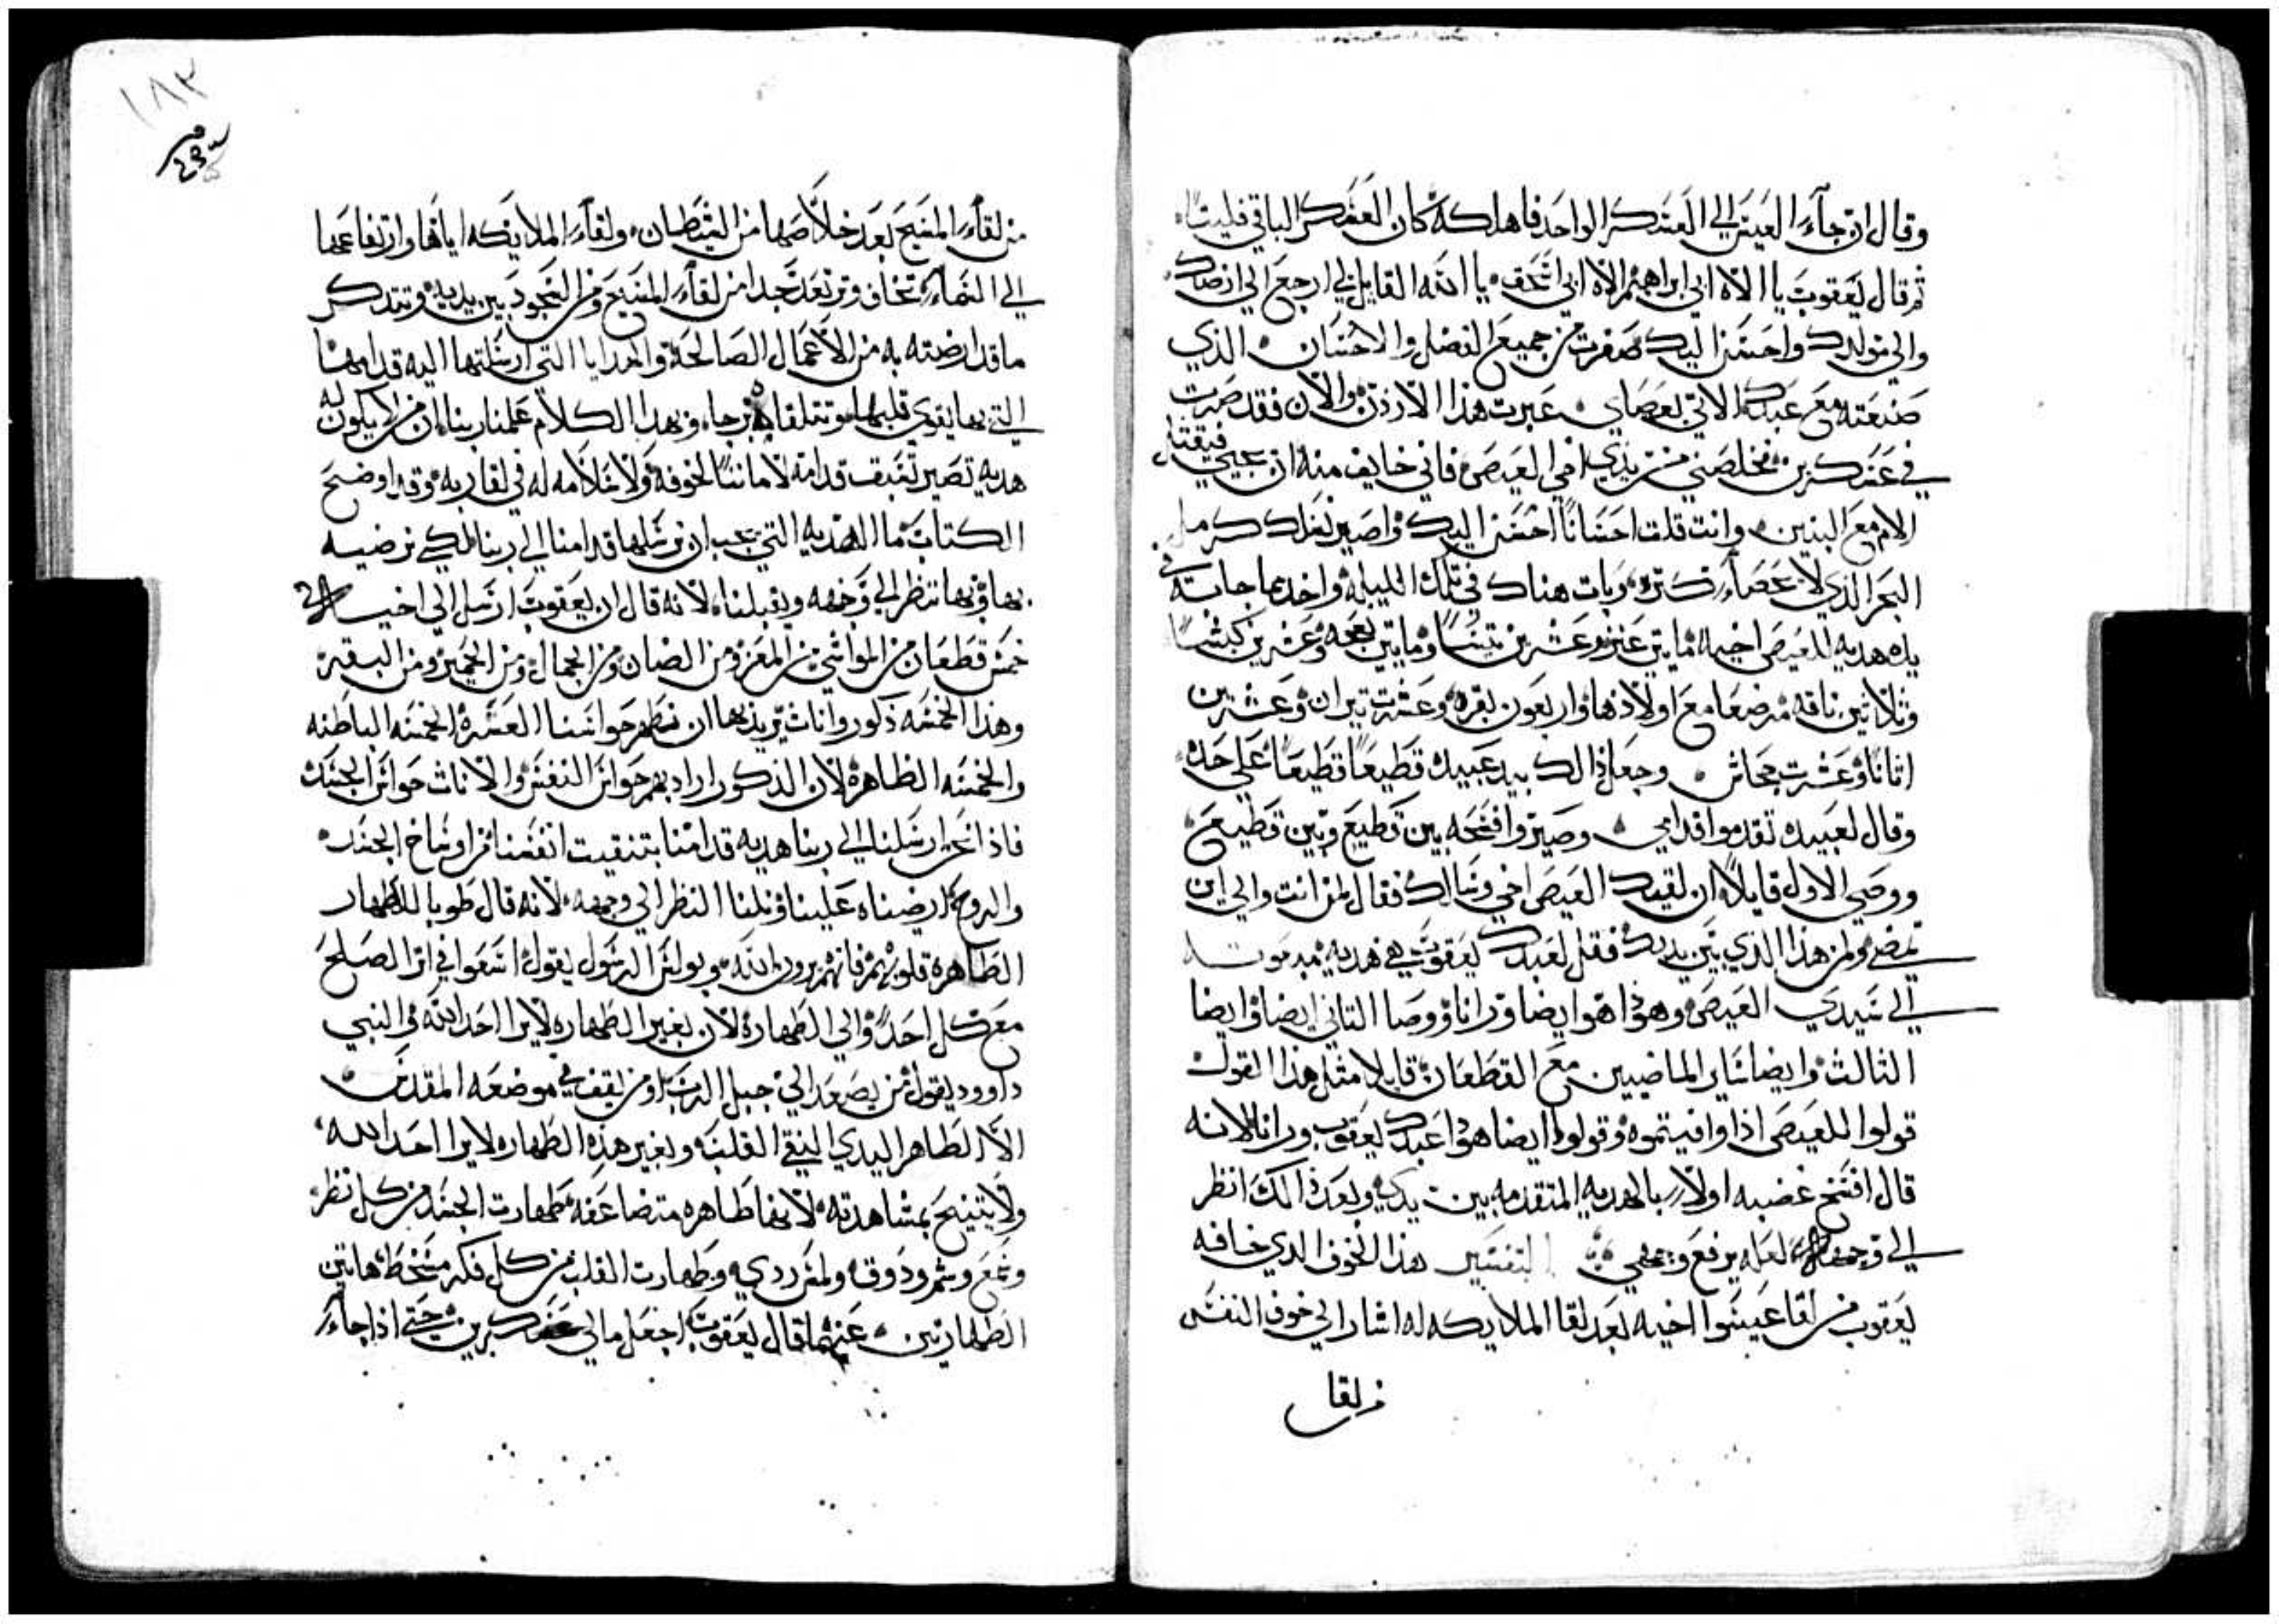 وقال ان جآء العيس الي العسكر الواحد فاهلكه كان العسكر الباقي فليتاه
ثم قال يعقوب يا الاه ابي ابراهيم الاه ابي اسحق يا الله القايل لي ارجع الي ارضك
والي مولدك واحسن اليك صغرت من جميع الفضل والاحسان الذي
صنعته مع عبدك لاني بعصاي عبرت هذا الاردن والان فقد صرت
في عسكرين فخلصني من يدي اخي العيص فاني خايف منه ان يجي فيقتل
الام مع البنين وانت قلت احسانا احسن اليك واصير نسلك كرمل
البحر الذي لا يحصاء كتره وبات هناك في تلك الليله واخد مما جابت في
يده هديه للعيص اخيه مايتي عنز وعشرين تيسا ومايتين نعجه وعشرين كبشا
وثلاثين ناقه مرضعا مع اولادها واربعون بقره وعشرت تيران وعشرين
اتانا وعشرت جحاش وجعل ذالك بيد عبيده قطيعا قطيعا علي حده
وقال لعبيده تقدموا قدامي وصيروا فسحه بين قطيع وبين قطيع
ووصي الاول قايلا ان لقيك العيص اخي وسالك فقال لمن انت والي اين
تمضي ولمن هذا الذي بين يديك فقل لعبدك يعقوب هي هديه مبعوته
الي سيدي العيص وهوذا هوا ايضا ورانا ووصا التاني ايضا وايضا
الثالث وايضا ساير الماضيين مع القطعان قايلا مثل هذا القول
قولوا للعيص اذا وافيتموه وقولوا ايضا هوذا عبدك يعقوب ورانا لانه
قال افسح غضبه اولا بالهديه المتقدمه بين يدي وبعد ذالك انظر
الي وجهه لعله يرفع وجهي التفسير هذا الخوف الدي خافه
يعقوب من لقا عيسوا اخيه بعد لقا الملايكه له اشار الي خوف النفس
من لقا
١٨٣
من لقاء المسيح بعد خلاصها من الشيطان ولقاء الملايكه اياها وارتفاعها
الي السماء تخاف وترتعد جدا من لقاء المسيح ومن السجود بين يديه وتتدكر
ما قد ارضته به من الاعمال الصالحه والهدايا التي ارسلتها اليه قدامها
التي بها يقوي قلبها وتتلقاه برجاء وبهدا الكلام علمنا ربنا ان من لا يكون له
هديه تصير تسبقت قدامه لا ماننا لخوفه ولا خلاصه له في لقا ربه وقد اوضح
الكتاب ما الهديه التي يجب ان نرسلها قدامنا الي ربنا لكي نرضيه
بها وبها ننظر الي وجهه ويقبلنا لانه قال ان يعقوب ارسل الي اخيه
خمس قطعان من المواشي من المعز ومن الضان ومن الجمال ومن الحمير ومن البقر
وهذا الخمسه ذكور واناث يريد بها ان نطهر حواسنا العشره الخمسه الباطنه
والخمسه الظاهره لان الذكور اراد بهم حواس النفس والاناث حواس الجسد
فاذا نحن ارسلنا الي ربنا هديه قدامنا بتنقيت انفسنا من اوساخ الجسد
والروح ارضيناه علينا ونلنا النظر الي وجهه لانه قال طوبا للاطهار
الطاهره قلوبهم فانهم يرون الله وبولس الرسول يقول اسعوا في اتر الصلح
مع كل احد والي الطهاره لان بغير الطهاره لا يرا احد الله والنبي
داوود يقول من يصعد الي جبل الرب او من يقف في موضعه المقدس
الا الطاهر اليدي النقي القلب وبغير هذه الطهاره لا يرا احد الله
ولا يتنيح بمشاهدته لانها طاهره متضاعفه طهارت الجسد من كل نظر
وسمع وشم وذوق ولمس رديه وطهارت القلب من كل فكر مسخط هاتين
الطهارتين عنهما قال يعقوب اجعل مالي عسكرين حتي اذا جاء